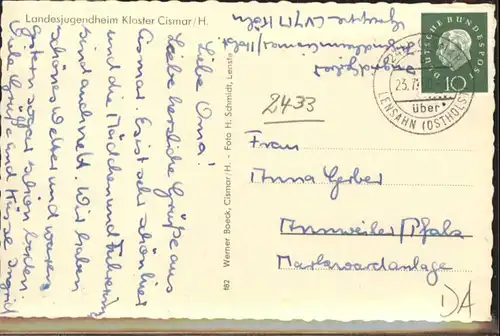 Landesjugendheim Kloster Cismar/H.
Liebe Oma!
Liebe herzliche Grüße aus
Cismar. Es ist sehr schön hier
und die Mädchen und Führerin
sind auch nett. Wir haben
schönes Wetter und waren
gestern schon schön baden
Gute Grüße und Küsse Ingrid
182 Werner Boeck, Cismar/H. - Foto H. Schmidt, Lensahn
Gruppe CVJM Köln
Landesjugendheim
DEUTSCHE BUNDESPOST
10
23.7.
über
LENSAHN (OSTHOLST)
2433
Frau
Anna Gerber
Annweiler/Pfalz
Markwardanlage
DA